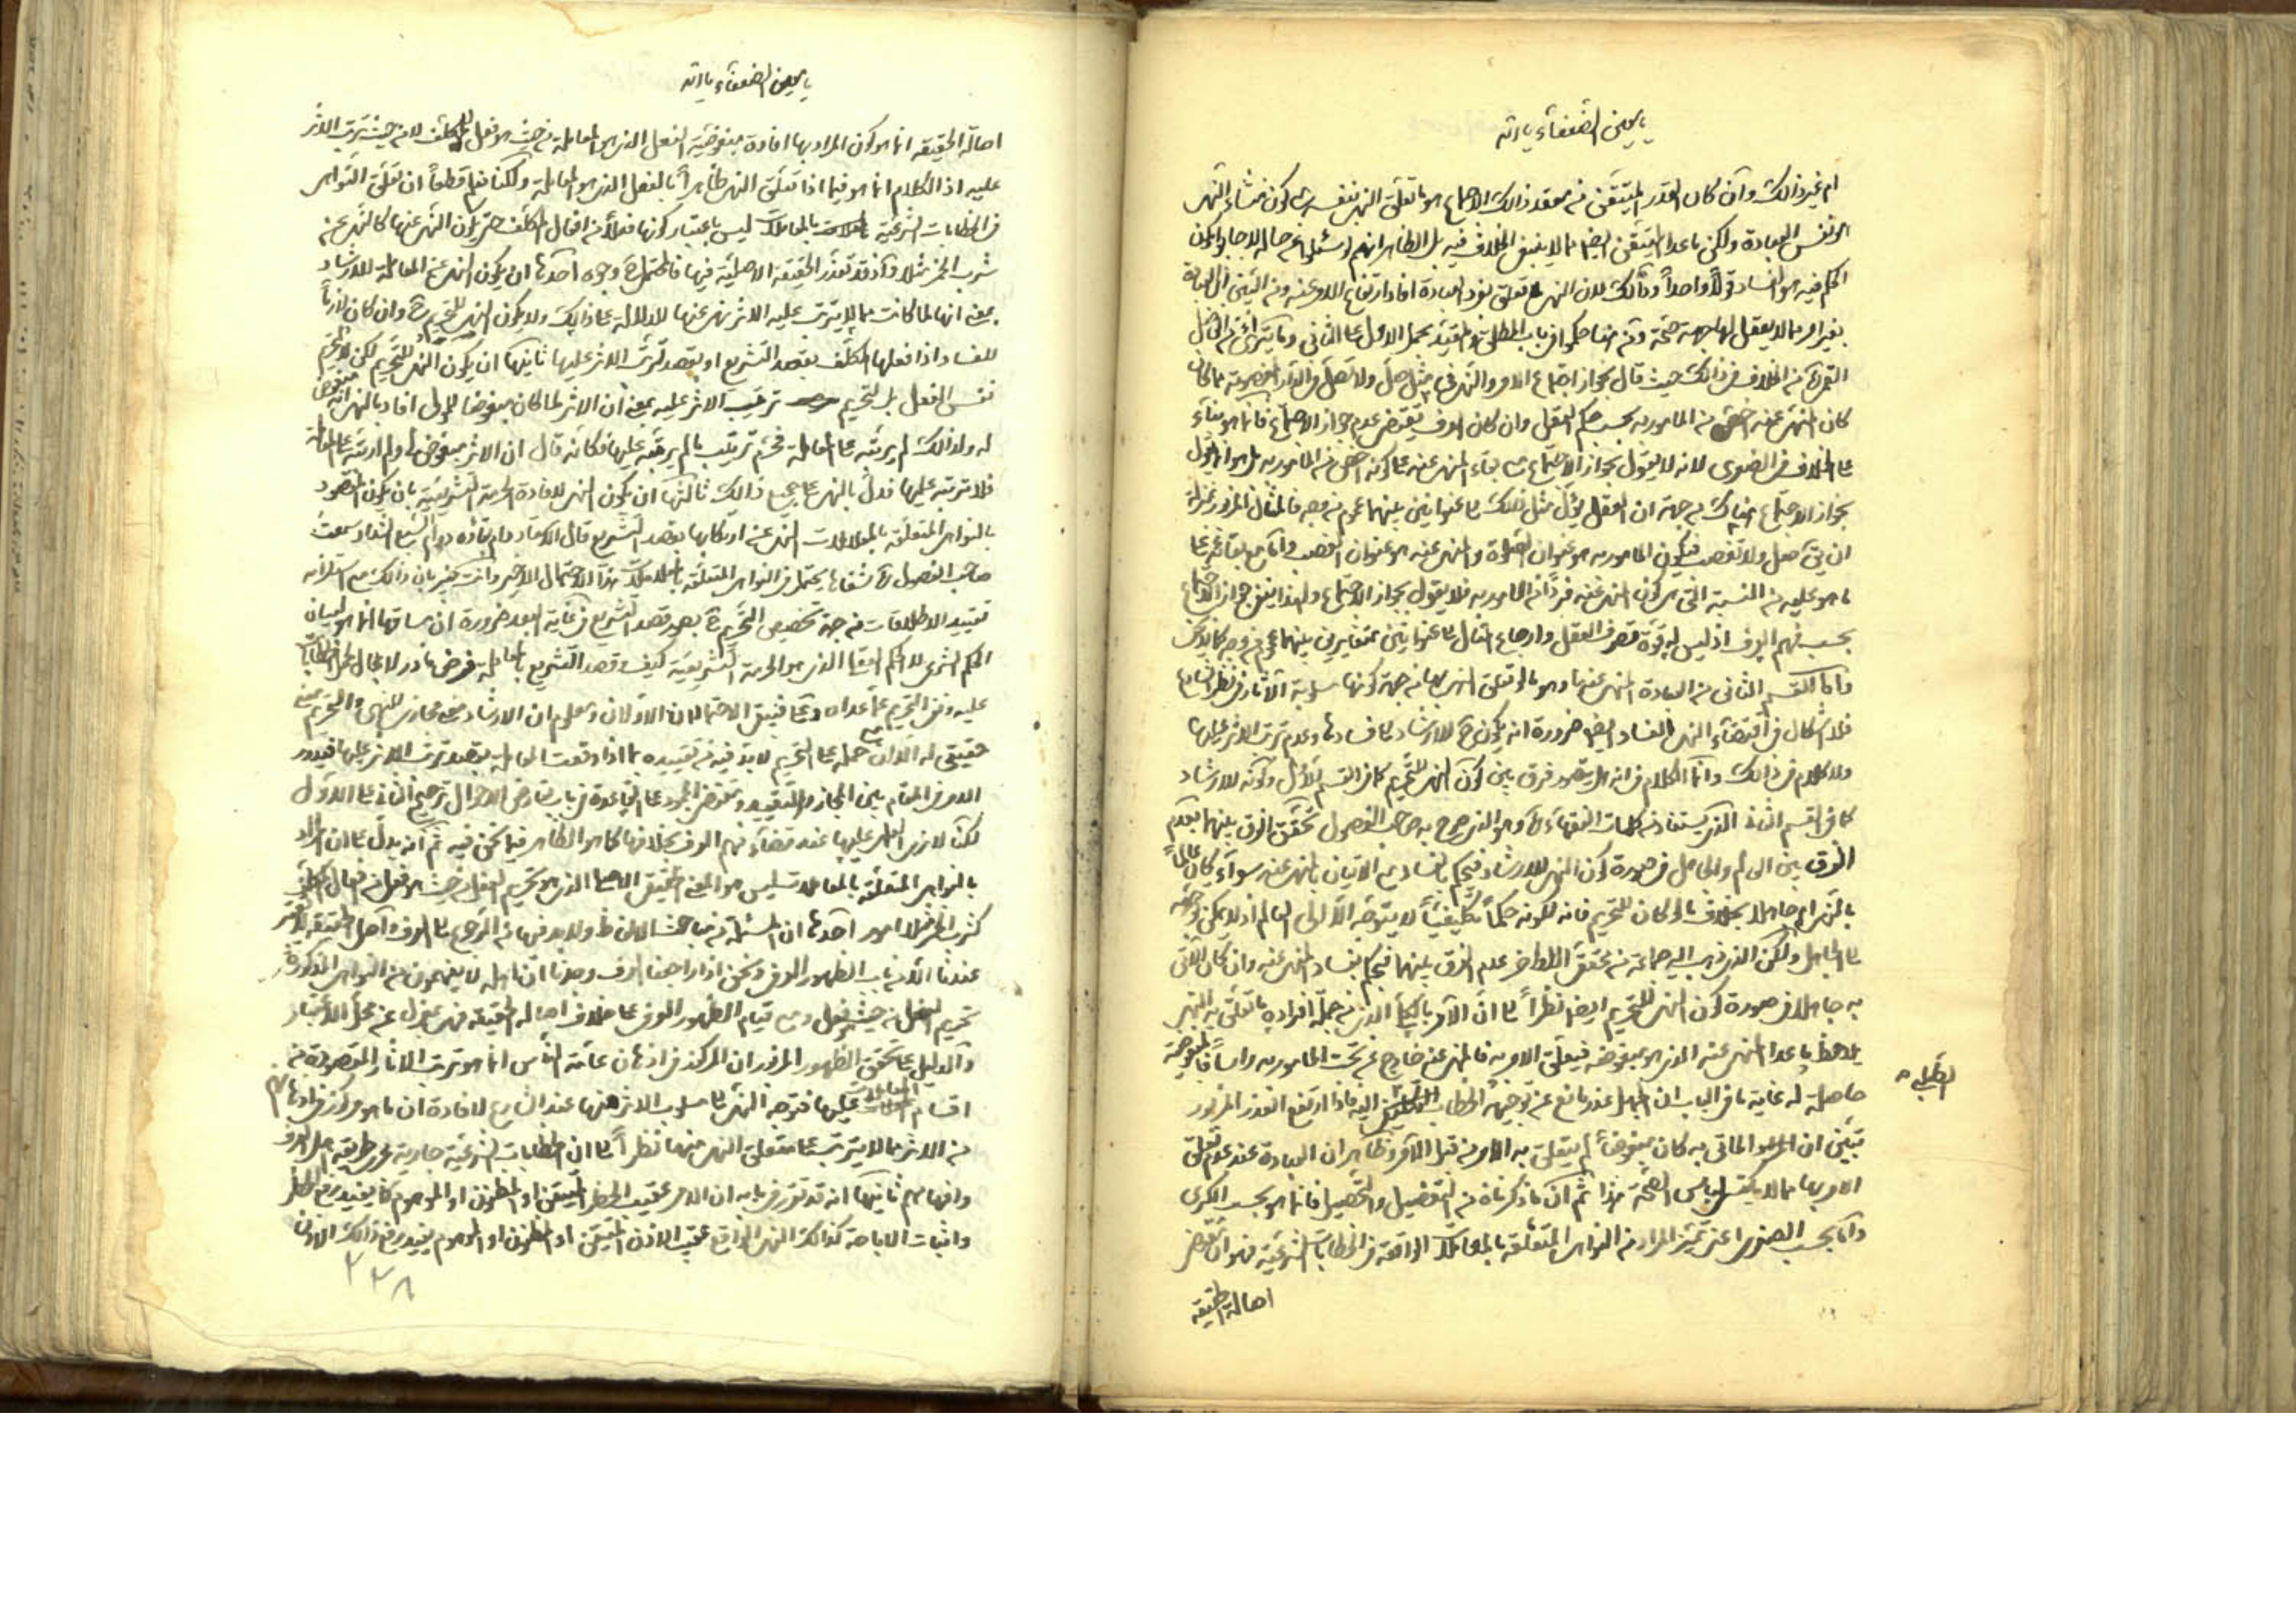 يا معين الضعفاء يا الله
ام غير ذالك وان كان القدر المتيقن من معقد ذالك الاجماع هو ما تعلق النهى بنفسه بان يكون منشاء النهى
هو نفس العبادة ولكن ما عدا المتيقن ايضا مما لا ينبغى الخلاف فيه بل الظاهر انهم لو سئلوا عن حاله لاجابوا بكون
الحكم فيه هو الفساد قولاً واحداً وذالك لان النهى تعلق بفرد العبادة افاد ارتفاع الامر عنه ومن البين ان العبادة
بغير امر مما لا يعقل لها جهة صحة ومن هنا حكموا فى باب المطلق والمقيد بحمل الاول على الثانى وما يترائى من الفاضل
القمى ره من الخلاف فى ذالك حيث قال بجواز اجتماع الامر والنهى فى مثل صل ولا تصل فى الدار المغصوبة مما كان
كان المنهى عنه اخص من المامور به بحسب حكم العقل وان كان العرف يقتضى عدم جواز الاجتماع فانما هو بناء
على الخلاف فى الصغرى لانه لا يقول بجواز الاجتماع مع بقاء المنهى عنه على كونه اخص من المامور به بل هو انما يقول
بجواز الاجتماع هناك من جهة ان العقل يؤل مثل ذلك الى عنوانين بينهما عموم من وجه فالمثال المزبور بمنزلة
ان يق صل ولا تغصب فيكون المامور به هو عنوان الصلوة والمنهى عنه هو عنوان الغصب واما مع بقائه على
ما هو عليه من النسبة التى هى كون المنهى عنه فرداً من المامور به فلا يقول بجواز الاجتماع ولهذا ينفى جواز الاجتماع
بحسب فهم العرف اذ ليس له قوة تصرف العقل وارجاع المثال الى عنوانين متغايرين بينهما عموم من وجه كما لا يخفى
واما القسم الثانى من العبادة المنهى عنها وهو ما لو تعلق النهى بها من جهة كونها مسلوبة الآثار فى نظر الشارع
فلا اشكال فى اقتضاء النهى الفساد ايضا ضرورة انه يكون ح للارشاد الى فسادها وعدم ترتب الاثر عليها
ولا كلام فى ذالك وانما الكلام فى انه هل يتصور فرق بين كون النهى للتحريم كما فى القسم الاول وكونه للارشاد
كما فى القسم الثانى الذى يستفاد من كلمات الفقهاء ره وهو الذى صرح به صاحب الفصول تحقق الفرق بينهما بعدم
الفرق بين العالم والجاهل فى صورة كون النهى للارشاد فيحكم بالفساد مع الاتيان بالمنهى عنه سواء كان عالماً
بالنهى ام جاهلا بخلاف ما لو كان للتحريم فانه لكونه حكماً تكليفياً لا يتوجه الا الى العالم اذ لا يمكن توجهه
الى الجاهل ولكن الذى ذهب اليه جماعة من محققى الاواخر عدم الفرق بينهما فيحكم بفساد المنهى عنه وان كان الآتى
به جاهلا فى صورة كون النهى للتحريم ايضا نظراً الى ان الآمر بالكلى الذى من جملة افراده ما تعلق به النهى
يلاحظ ما عدا المنهى عنه الذى هو مبغوضه فيعلق الامر به فالمنهى عنه خارج عن تحت المامور به راسا فالمبغوضية
حاصلة له غاية ما فى الباب ان الجهل عذر مانع عن توجيه الخطاب التكليفى اليه فاذا ارتفع العذر المزبور
تبين ان المأتى به كان مبغوضاً لم يتعلق به الامر من قبل الآمر وظاهر ان العبادة عند عدم تعلق
الامر بها مما لا يكتسى لباس الصحة هذا ثم ان ما ذكرناه من التفصيل والتحصيل فانما هو بحسب الكبرى
واما بحسب الصغرى اعنى تميز المراد من النواهى المتعلقة بالمعاملات الواقعة فى الخطابات الشرعية فهو ان مقتضى
اصالة الحقيقة
يا معين الضعفاء يا الله
اصالة الحقيقة انما هو كون المراد بها افادة مبغوضية الفعل الذى هو المعاملة من حيث هو فعل للمكلف لا من حيث ترتب الاثر
عليه اذ الكلام انما هو فيما اذا تعلق النهى ظاهراً بالفعل الذى هو المعاملة ولكنا نعلم قطعاً ان تعلق النواهى
فى الخطابات الشرعية بالمعاملات ليس باعتبار كونها فعلاً من افعال المكلف حتى يكون النهى عنها كالنهى عن
شرب الخمر مثلا واذ قد تعذر الحقيقة الاصلية فيها فالمحتمل ح وجوه احدها ان يكون النهى عن المعاملة للارشاد
بمعنى انها لما كانت مما لا يترتب عليه الاثر نهى عنها للدلالة على ذالك ولا يكون النهى للتحريم ح وان كان لازماً
للفساد اذا فعلها المكلف بقصد التشريع او بقصد ترتب الاثر عليها ثانيها ان يكون النهى للتحريم لكن لا تحريم
نفس الفعل بل تحريم ترتيب الاثر عليه بمعنى ان الاثر لما كان مبغوضا للمولى افاد بالنهى انه مبغوض
له ولذالك لم يرتبه على المعاملة فحرم ترتيب ما لم يرتبه عليها فكانه قال ان الاثر مبغوض لى ولم ارتبه على المعاملة
فلا ترتبه عليها فدل بالنهى على جميع ذالك ثالثها ان يكون النهى لافادة الحرمة التشريعية بان يكون المقصود
بالنواهى المتعلقة بالمعاملات النهى عن ارتكابها بقصد التشريع قال الاستاد دام بقائه
صاحب الفصول ره شفاها يحتمل فى النواهى المتعلقة بالمعاملات هذا الاحتمال الاخير وانت خبير بان ذالك مع استلزامه
تقييد الاطلاقات من جهة تخصيص التحريم ح بصورة قصد التشريع فى غاية البعد ضرورة ان مساقها انما هو لبيان
الحكم الشرعى لا الحكم العقلى الذى هو الحرمة التشريعية كيف وقصد التشريع بالمعاملة فرض نادر لا مجال لحمل الخطابات
عليه ونفى التحريم عما عداه وح فيبقى الاحتمالان الاولان ومعلوم ان الارشاد معنى مجازى للنهى والتحريم معنى
حقيقى له الا ان حمله على التحريم لابد فيه من تقييده بما اذا وقعت المعاملة بقصد ترتب الاثر عليها فيدور
الامر فى المقام بين المجاز والتقييد ومقتضى الجمود على القاعدة فى باب تعارض الاحوال ترجيح الثانى على الاول
لكنا لا نرى العمل عليها عند قضاء فهم العرف بخلافها كما هو الظاهر فيما نحن فيه ثم انه يدل على ان المراد
بالنواهى المتعلقة بالمعاملات ليس هو المعنى الحقيقى الاصلى الذى هو تحريم الفعل من حيث هو فعل من افعال المكلف
كشرب الخمر مثلا امور احدها ان المسئلة من مباحث الالفاظ ولابد فيها من الرجوع الى العرف واصل الحقيقة المعتبر
عندنا انه من باب الظهور العرفى ونحن اذا راجعنا العرف وجدنا ان اهله لا يفهمون من النواهى المذكورة
تحريم الفعل من حيث هو فعل ومع قيام الظهور العرفى على خلاف اصالة الحقيقة فهى بمعزل عن محل الاعتبار
والدليل على تحقق الظهور المزبور ان المركوز فى اذهان عامة الناس انما هو ترتب الآثار المقصودة من
اقسام المعاملات عليها فتوجه النهى الى مسلوب الاثر منها عند الشارع لافادة ان ما هو مركوز فى اذهانهم
من الاثر مما لا يترتب على متعلق النهى منها نظراً الى ان الخطابات الشرعية جارية على طريقة اهل العرف
وافهامهم ثانيها انه قد تقرر فى بابه ان الامر عقيب الحظر المتيقن او المظنون او الموهوم كما يفيد رفع الحظر
واثبات الاباحة كذالك النهى الواقع عقيب الاذن المتيقن او المظنون او الموهوم يفيد رفع ذالك الاذن
٢٣٨